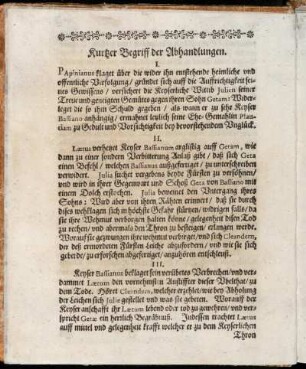 Kurtzer Begriff der Abhandlungen.
I.
PApinianus klaget über die wider ihn entstehende heimliche und
offentliche Verfolgung/ gründet sich auff die Auffrichtigkeit sei-
nes Gewissens/ versichert die Keyserliche Wittib Julien seiner
Treue und geneigten Gemüttes gegen ihren Sohn Getam: Wider-
leget die so ihm Schuld gegeben/ als wann er zu sehr Keyser
Bassiano anhängig/ ermahnet letzlich seine Ehe-Gemahlin Plau-
tiam zu Gedult und Vorsichtigkeit bey bevorstehendem Unglück.
II.
Lætus verhetzet Keyser Bassianum arglistig auff Getam, wie
dann zu einer sondern Verbitterung Anlaß gibt/ daß sich Geta
einen Befehl/ welchen Bassianus außgefertiget/ zu unterschreiben
verwidert. Julia suchet vergebens beyde Fürsten zu versöhnen/
und wird in ihrer Gegenwart und Schoß Geta von Bassiano mit
einem Dolch erstochen. Julia beweinet den Untergang ihres
Sohns: Wird aber von ihren Räthen erinnert/ daß sie durch
diß wehklagen sich in höchste Gefahr stürtzen/ widrigen falls/ da
sie ihre Wehmut verborgen halten könne/ gelegenheit diesen Tod
zu rechen/ und abermals den Thron zu besteigen/ erlangen werde.
Worauff sie gezwungen ihre wehmut verbirget/ und sich Cleandern,
der deß ermordeten Fürsten Leiche abzufordern/ und wie sie sich
geberde/ zu erforschen abgefertiget/ anzuhören entschleust.
III.
Keyser Bassianus beklaget sein verübetes Verbrechen/ und ver-
dammet Lætum den vornehmsten Anstiffter dieser Übelthat/ zu
dem Tode. Höret Cleandern, welcher erzehlet/ wie bey Abholung
der Leichen sich Julie gestellet und was sie gebeten. Worauff der
Keyser anschafft ihr Lætum lebend oder tod zu gewehren/ und ver-
spricht Getæ ein herrlich Begräbnüß. Indessen trachtet Lætus
auff mittel und gelegenheit krafft welcher er zu dem Keyserlichen
Thron